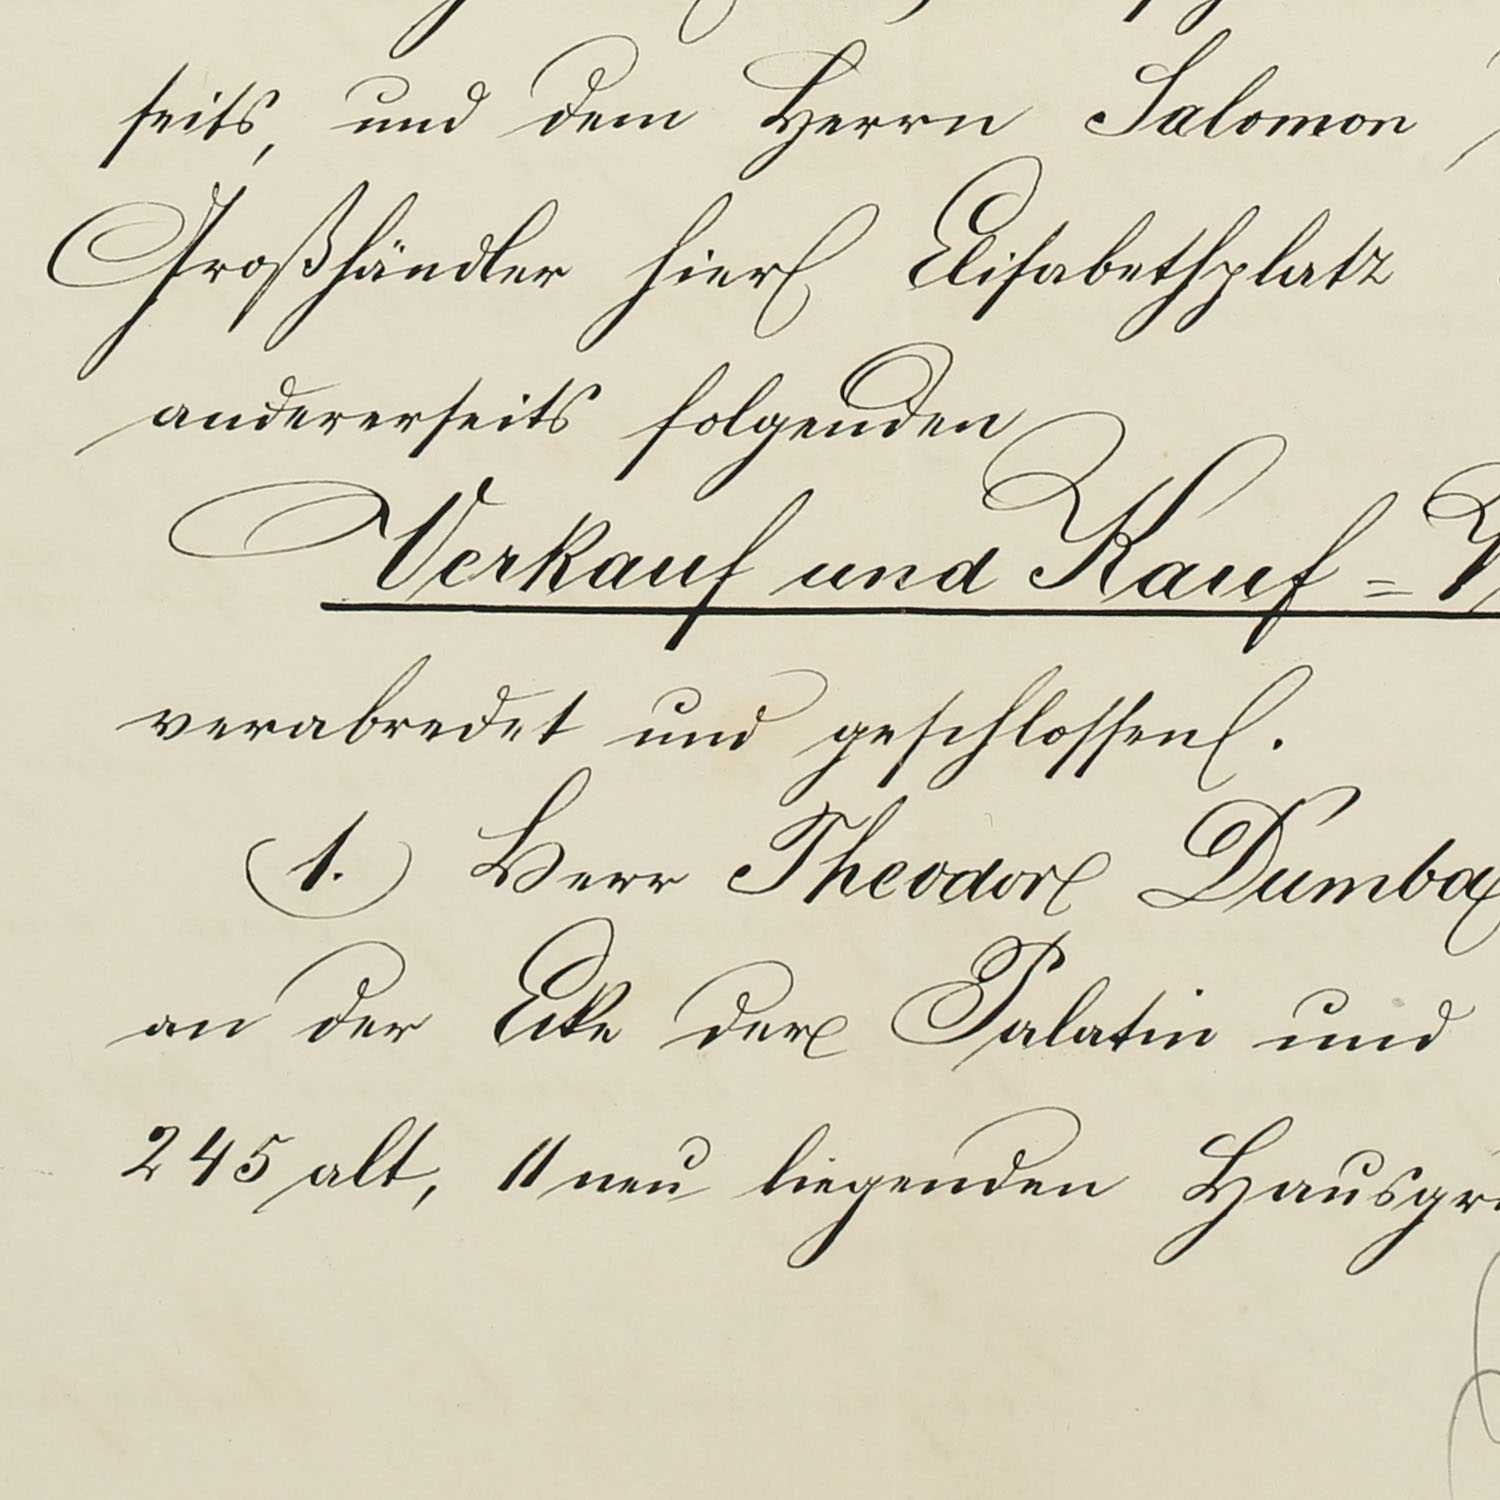 seits, und dem Herrn Salomon
Großhändler hier Elisabethplatz
andererseits folgenden
Verkauf und Kauf =
verabredet und geschlossen.
(1.) Herr Theodor Dumba
an der Ecke der Palatin und
245 alt, 11 neu liegenden Hausgr